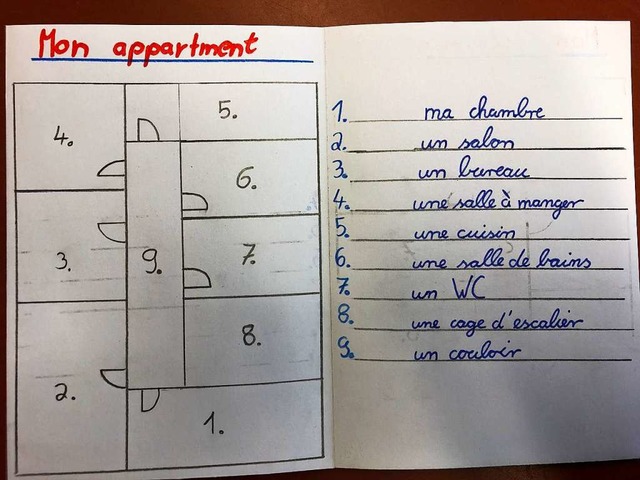 Mon appartment
4.
5.
6.
3.
9.
7.
8.
2.
1.
1. ma chambre
2. un salon
3. un bureau
4. une salle à manger
5. une cuisin
6. une salle de bains
7. un WC
8. une cage d'escalier
9. un couloir